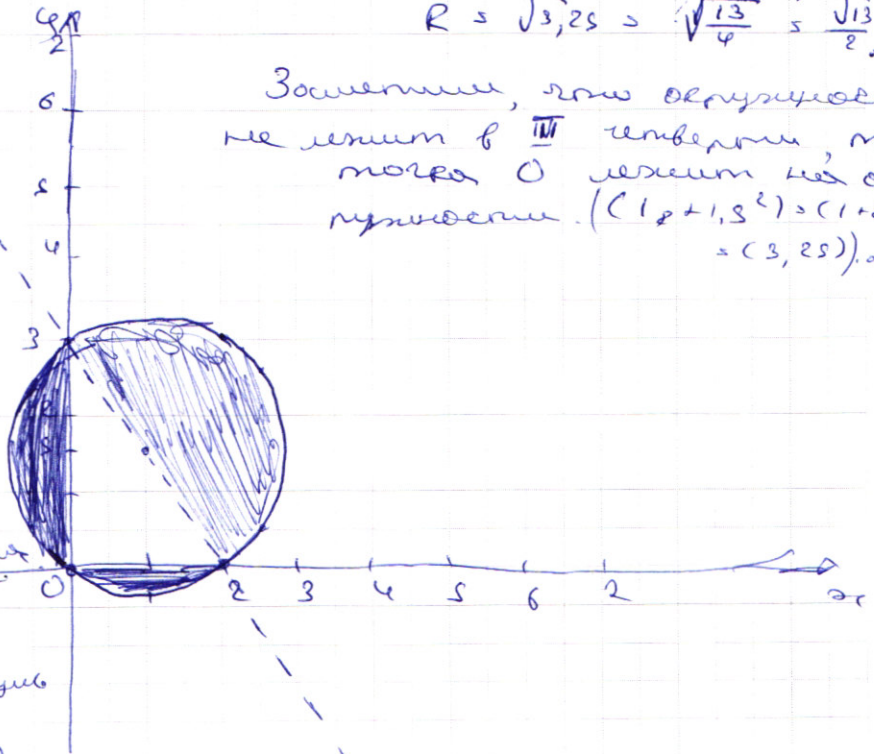 R = √3,25 = √13/4 = √13/2
Заметим, что окружнос
не лежит в III четверти, т
точка O лежит на о
ружности. ((1² + 1,5²) = (1+
= (3,25)).
y
7
6
5
4
3
2
0 2 3 4 5 6 7 x